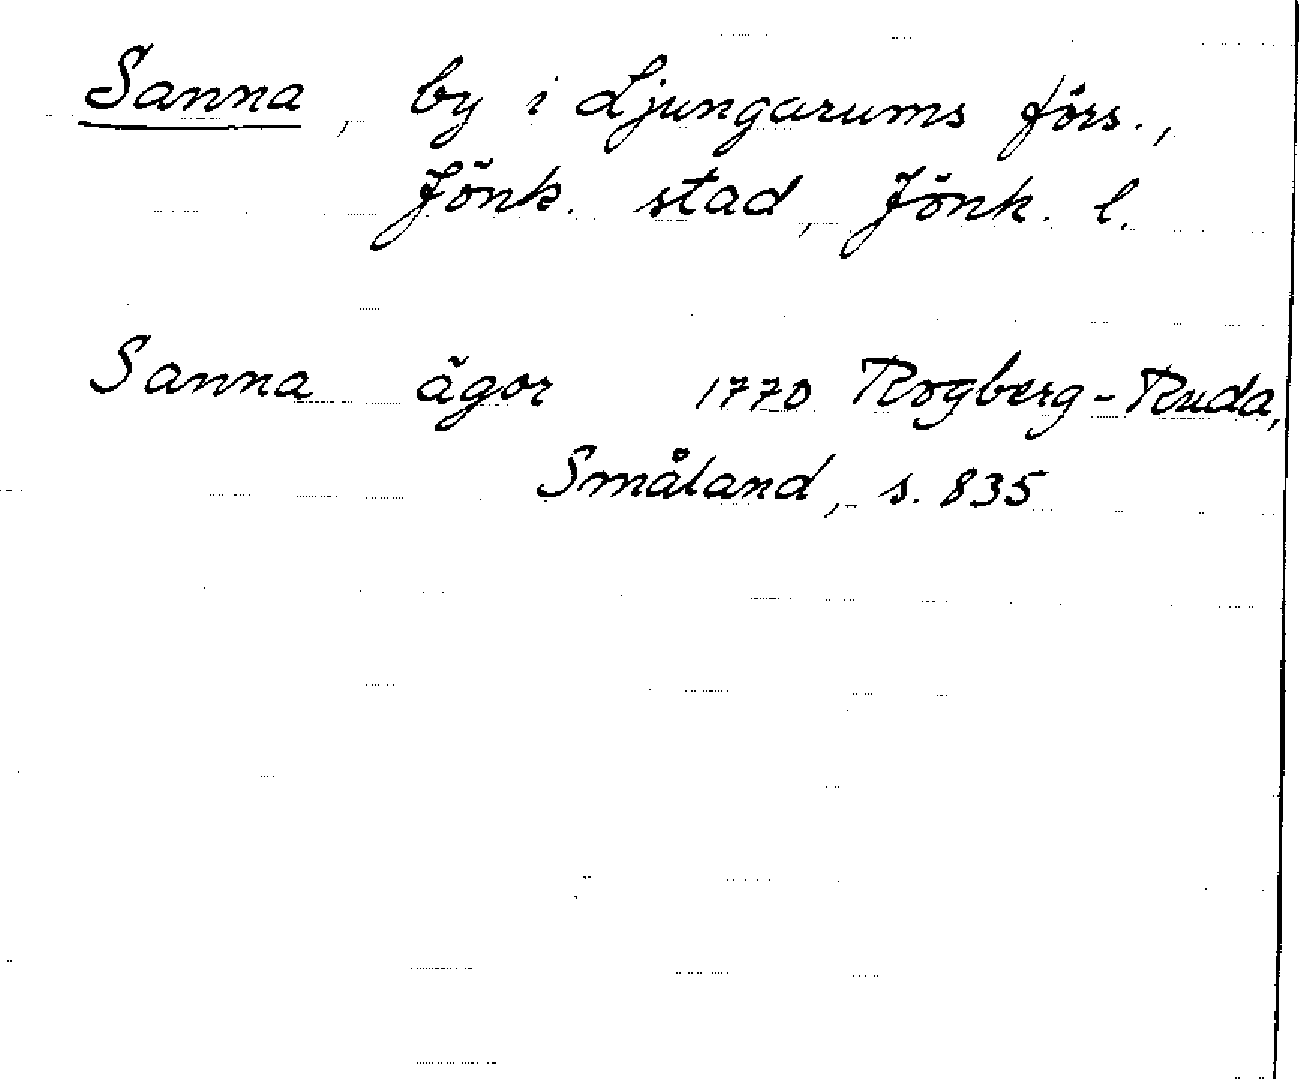 Sanna, by i Ljungarums förs.,
Jönk. stad, Jönk. l.
Sanna ägor 1770 Rogberg-Ruda,
Småland, s. 835